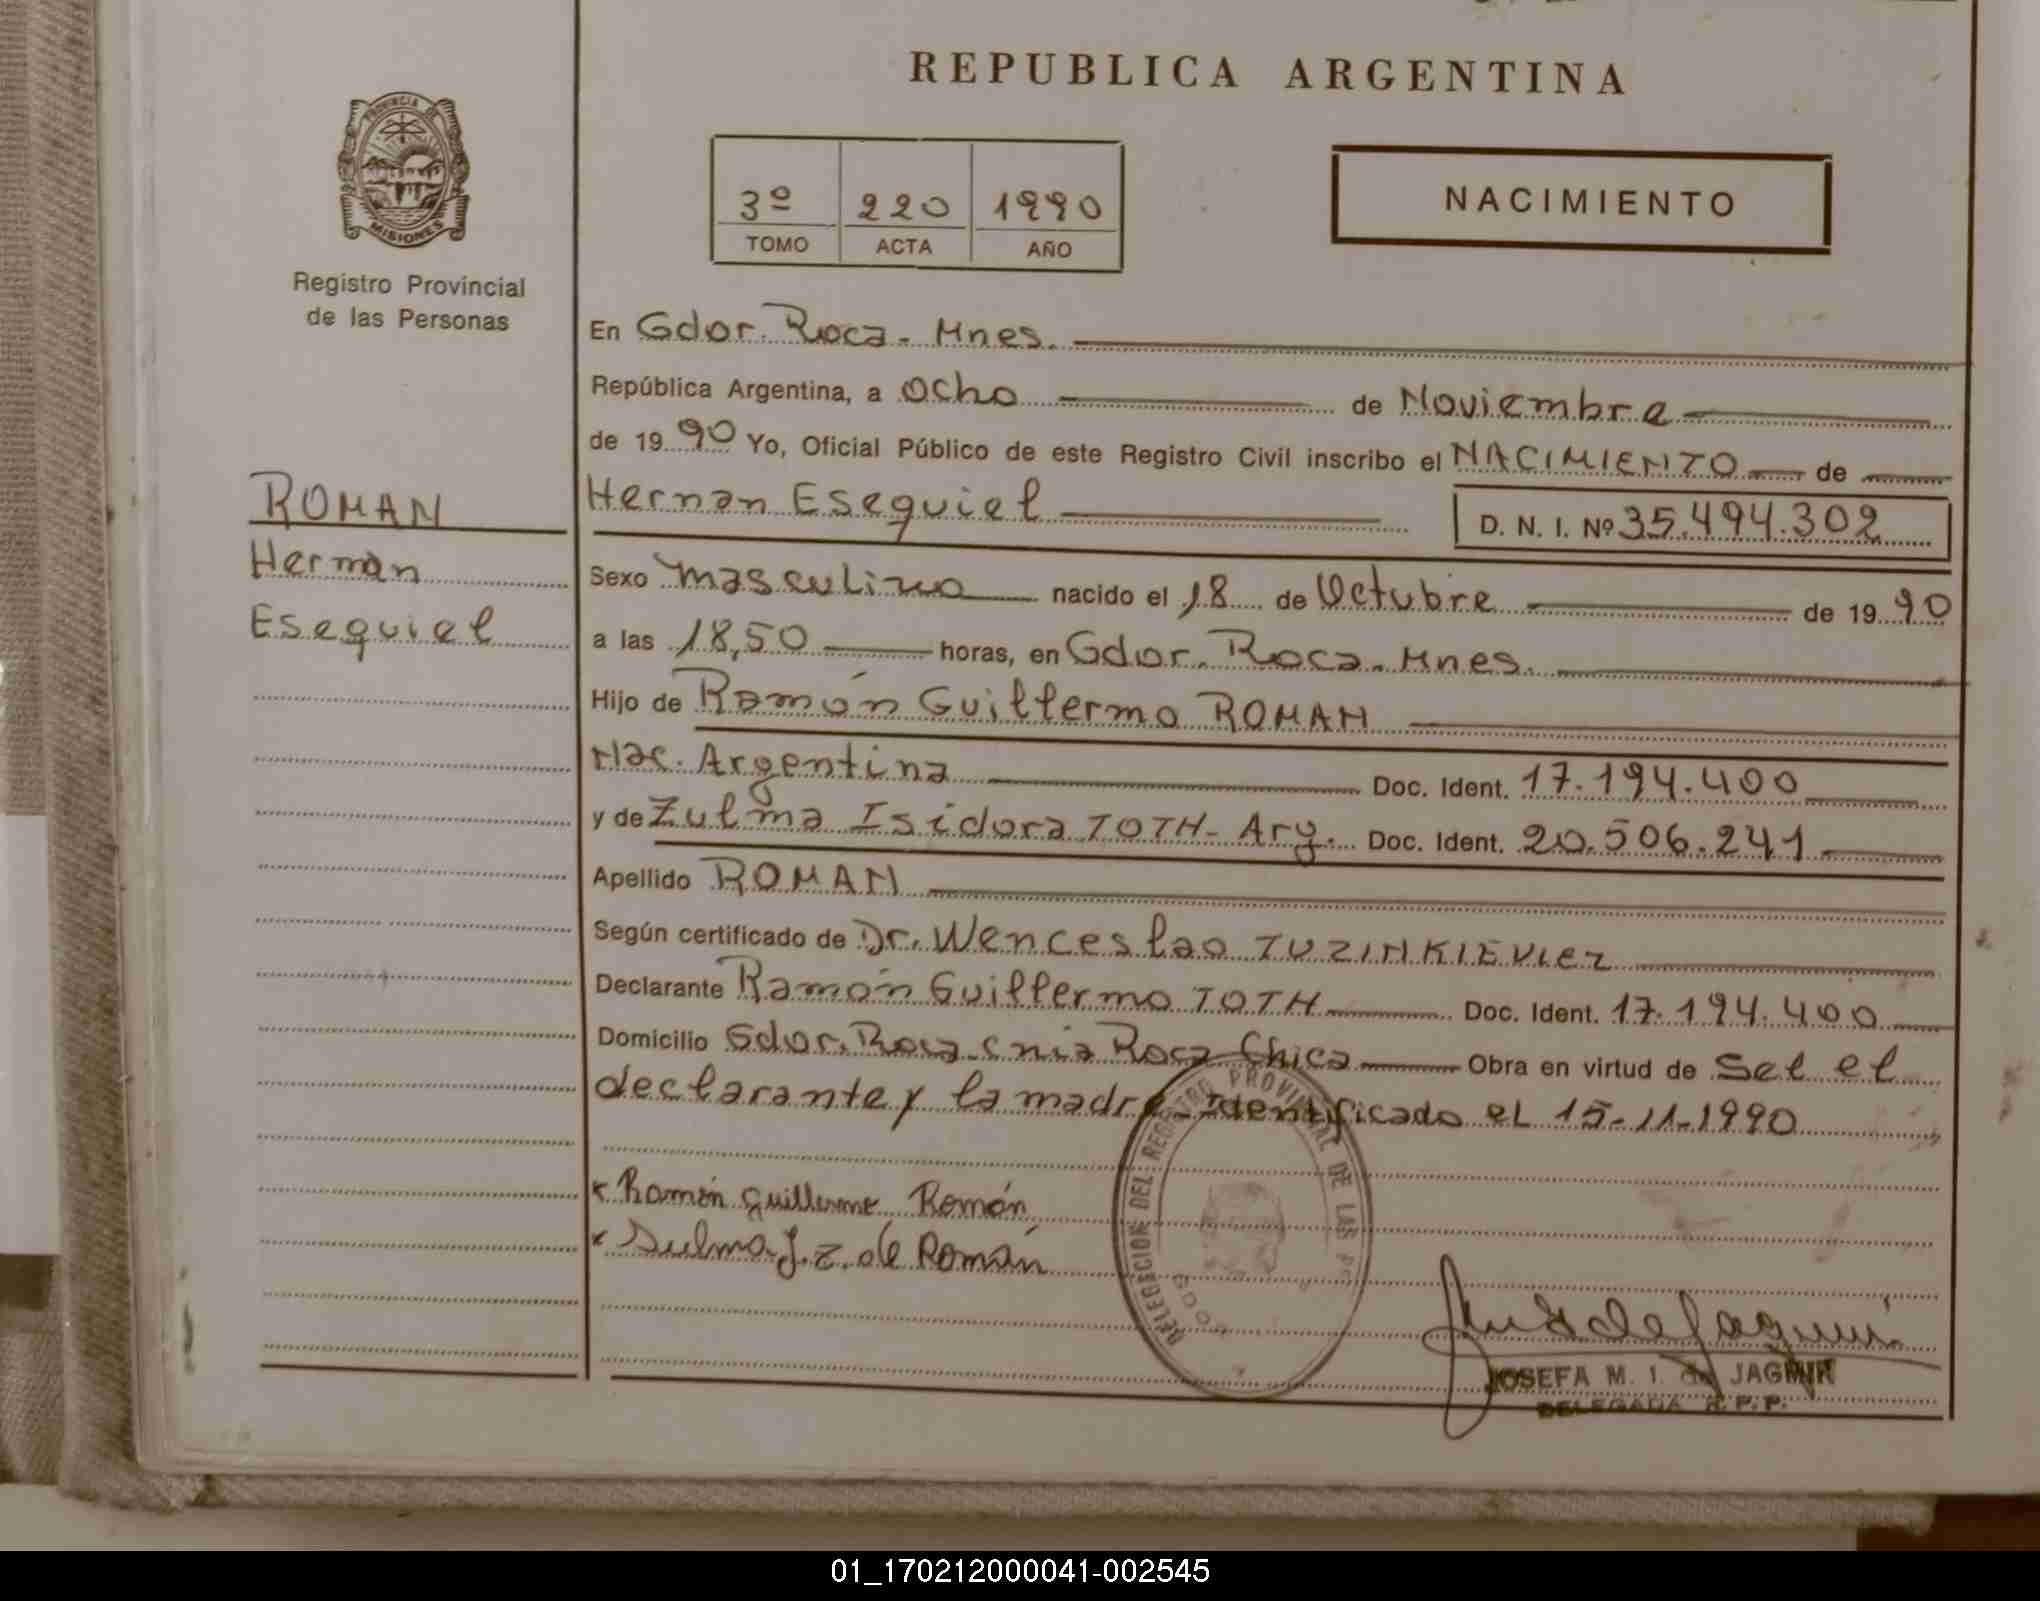 REPUBLICA ARGENTINA
PROVINCIA DE
MISIONES
Registro Provincial
de las Personas
3º 220 1990
TOMO ACTA AÑO
NACIMIENTO
En Gdor. Roca - Mnes.
República Argentina, a Ocho de Noviembre
de 19 90 Yo, Oficial Público de este Registro Civil inscribo el NACIMIENTO de
Hernan Esequiel D. N. I. Nº 35.494.302
ROMAN
Hernan
Esequiel
Sexo masculino nacido el 18 de Octubre de 19 90
a las 18,50 horas, en Gdor. Roca - Mnes.
Hijo de Ramón Guillermo ROMAN
Nac. Argentina Doc. Ident. 17.194.400
y de Zulma Isidora TOTH - Arg. Doc. Ident. 20.506.241
Apellido ROMAN
Según certificado de Dr. Wenceslao TUZINKIEVIEZ
Declarante Ramón Guillermo TOTH Doc. Ident. 17.194.400
Domicilio Gdor. Roca - Cnia Roca Chica Obra en virtud de Sel el
declarante y la madre - Identificado el 15-11-1990
DELEGACION DEL REGISTRO PROVINCIAL DE LAS
x Ramón Guillermo Román
x Sulma J. z. de Román
JOSEFA M. I. de JAGMIN
DELEGADA R. P. P.
01_170212000041-002545